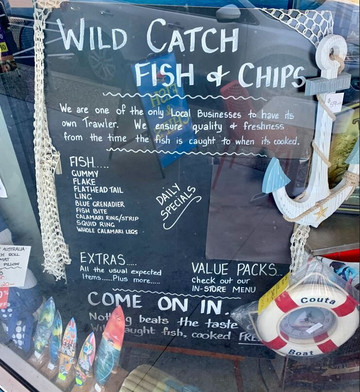 WILD CATCH
FISH & CHIPS
We are one of the only Local Businesses to have its
own Trawler. We ensure quality & freshness
from the time the fish is caught to when its cooked.
FISH....
GUMMY
FLAKE
FLATHEAD TAIL
LING
BLUE GRENADIER
FISH BITE
CALAMARI RING/STRIP
SQUID RING
WHOLE CALAMARI LEGS
DAILY
SPECIALS
EXTRAS.....
All the usual expected
items......Plus more.....
VALUE PACKS..
check out our
IN-STORE MENU
COME ON IN...
Nothing beats the taste
Wild caught fish, cooked FRE
Couta
Boat
AUSTRALIA
ROLL